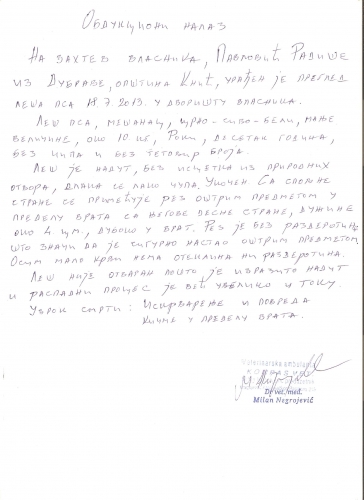 Обдукциони налаз
На захтев власника, Павловић Радише
из Дубраве, општина Кнић, урађен је преглед
леша пса 18.7.2013. у дворишту власника.
Леш пса, мешанац, црно-сиво-бели, мање
величине, око 10 кг, Роки, десетак година,
без чипа и без тетовир броја.
Леш је надут, без исцетка из природних
отвора, длака се лако чупа. Укочен. Са спољне
стране се примећује рез оштрим предметом у
пределу врата са његове десне стране, дужине
око 4 цм, дубоко у врат. Рез је без раздеротине
што значи да је сигурно настао оштрим предметом.
Осим мало крви нема отеклина ни раздеротина.
Леш није отваран пошто је изразито надут
и распадни процес је већ увелико у току.
Узрок смрти: Искрварење и повреда
кичме у пределу врата.
Veterinarska ambulanta
Dr vet. med.
Milan Negrojević